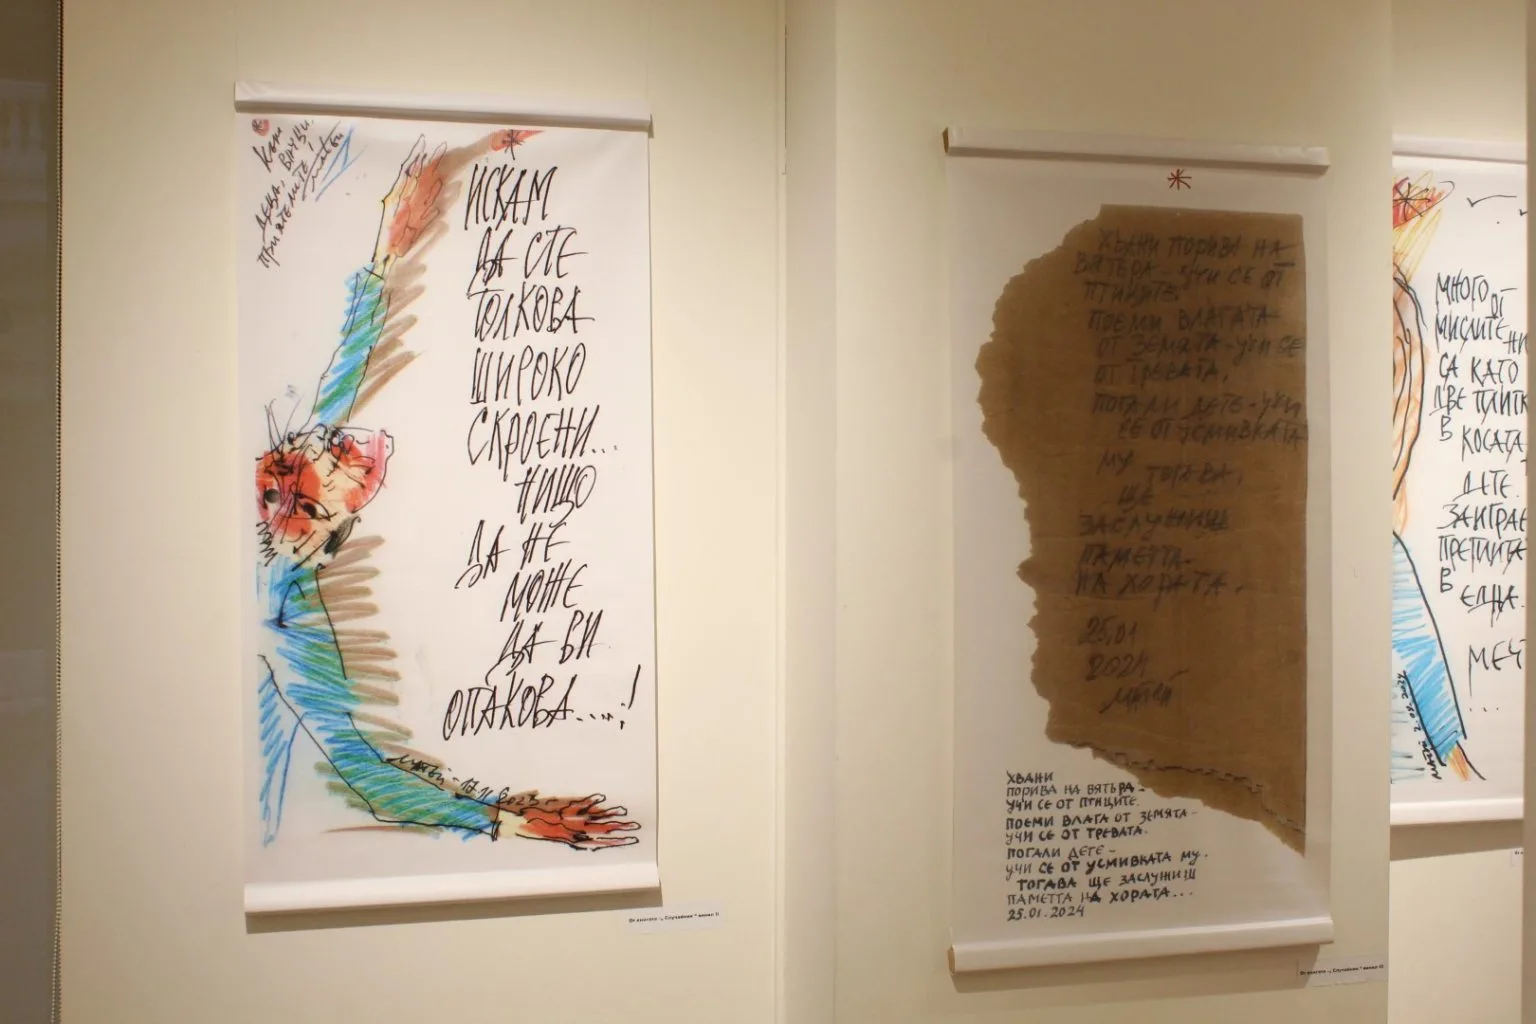 Към
деца, внуци,
приятелите!
Матей
ИСКАМ
ДА СТЕ
ТОЛКОВА
ШИРОКО
СКРОЕНИ...
НИЩО
ДА НЕ
МОЖЕ
ДА ВИ
ОПАКОВА....!
МАТЕЙ - 17.11 2023
От книгата „ Случайник "
ХВАНИ ПОРИВА НА
ВЯТЪРА - УЧИ СЕ ОТ
ПТИЦИТЕ.
ПОЕМИ ВЛАГАТА
ОТ ЗЕМЯТА - УЧИ СЕ
ОТ ТРЕВАТА,
ПОГАЛИ ДЕТЕ - УЧИ
СЕ ОТ УСМИВКАТА
МУ
ТОГАВА,
ЩЕ
ЗАСЛУЖИШ
ПАМЕТТА
НА ХОРАТА.
25.01
2024
МАТЕЙ
ХВАНИ
ПОРИВА НА ВЯТЪРА -
УЧИ СЕ ОТ ПТИЦИТЕ.
ПОЕМИ ВЛАГА ОТ ЗЕМЯТА -
УЧИ СЕ ОТ ТРЕВАТА.
ПОГАЛИ ДЕТЕ -
УЧИ СЕ ОТ УСМИВКАТА МУ.
ТОГАВА ЩЕ ЗАСЛУЖИШ
ПАМЕТТА НА ХОРАТА...
25.01.2024
От книгата „ Случайник "
МНОГО
ОТ
МИСЛИТЕ
НИ
СА КАТО
ДВЕ ПЛИТК
В
КОСАТА
ДЕТЕ.
ЗАИГРАЕ
ПРЕТПИТЕ
В
ЕДНА.
МЕЧТ
...
МАТЕЙ 2.08.2024